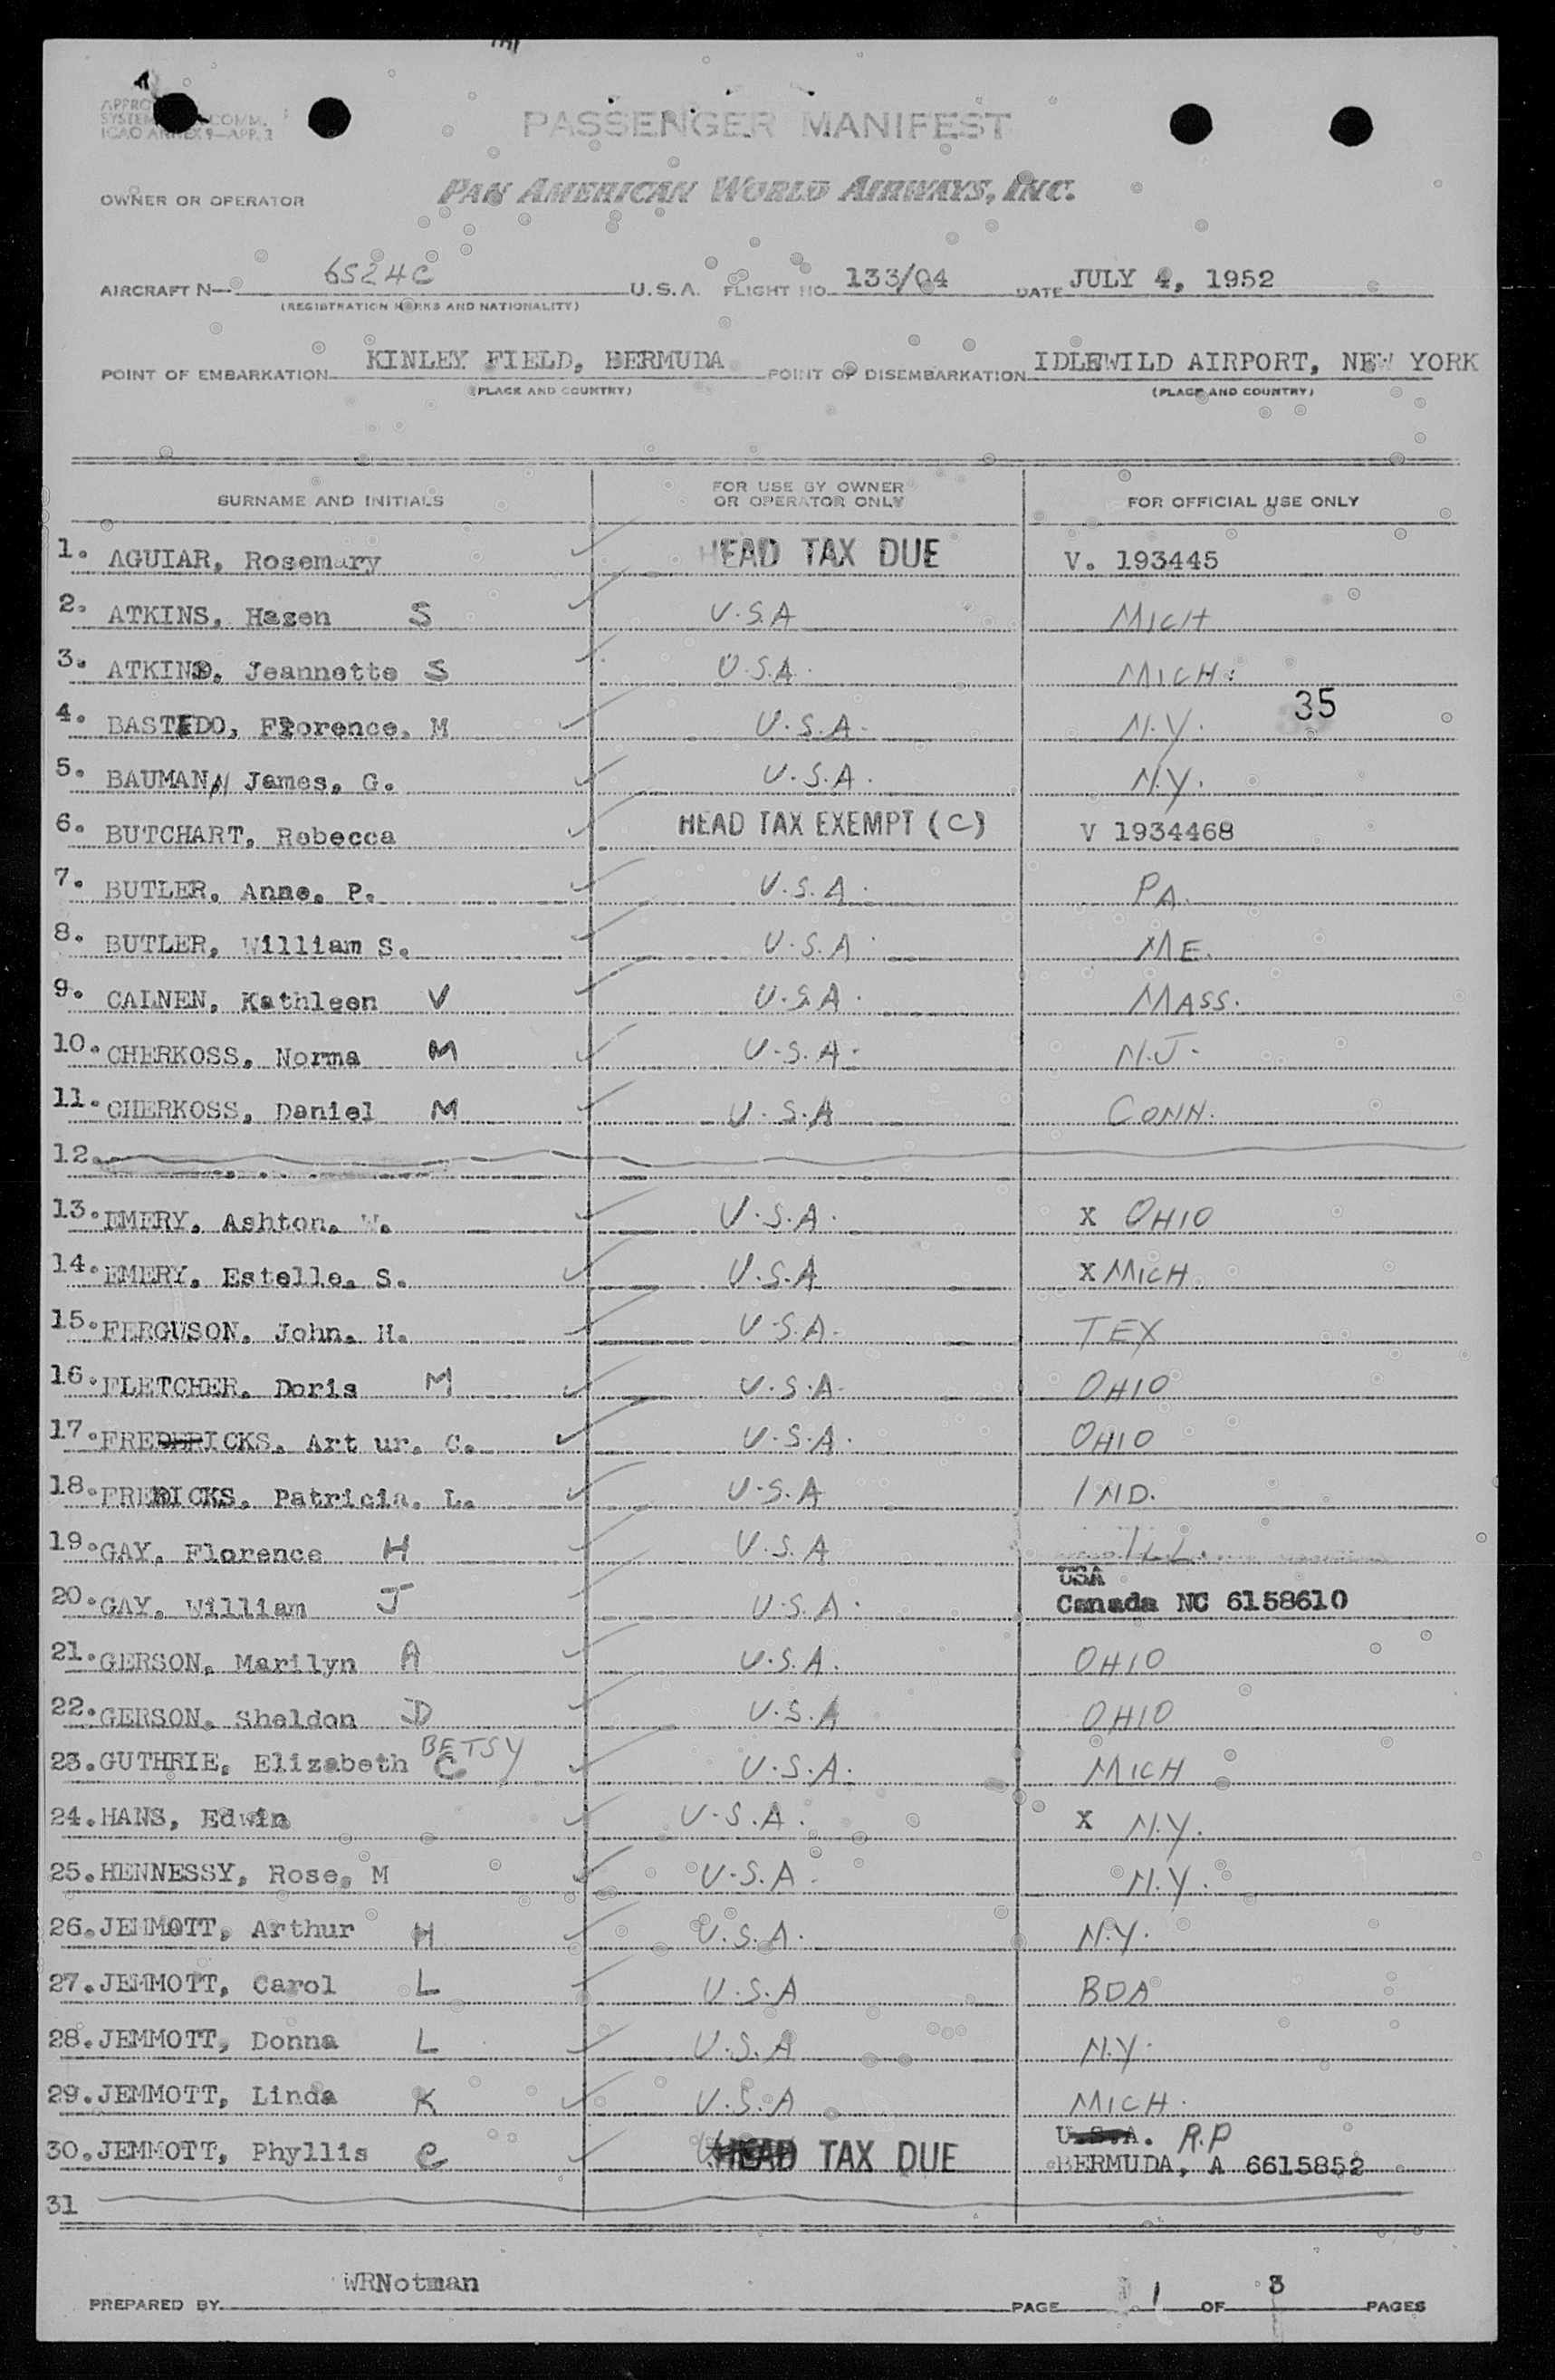 PASSENGER MANIFEST
ICAO ANNEX 9—APP. 3
OWNER OR OPERATOR PAN AMERICAN WORLD AIRWAYS, INC.
AIRCRAFT N— 6524C U.S.A. FLIGHT NO. 133/04 DATE JULY 4, 1952
(REGISTRATION MARKS AND NATIONALITY)
POINT OF EMBARKATION KINLEY FIELD, BERMUDA POINT OF DISEMBARKATION IDLEWILD AIRPORT, NEW YORK
(PLACE AND COUNTRY) (PLACE AND COUNTRY)
SURNAME AND INITIALS FOR USE BY OWNER OR OPERATOR ONLY FOR OFFICIAL USE ONLY
1. AGUIAR, Rosemary HEAD TAX DUE V. 193445
2. ATKINS, Hazen S U.S.A MICH
3. ATKINS, Jeannette S U.S.A. MICH.
35
4. BASTEDO, Florence. M U.S.A. N.Y.
5. BAUMANN James, G. U.S.A. N.Y.
6. BUTCHART, Rebecca HEAD TAX EXEMPT (C) V 1934468
7. BUTLER, Anne, P. U.S.A. PA.
8. BUTLER, William S. U.S.A. ME.
9. CALNEN, Kathleen V U.S.A. MASS.
10. CHERKOSS, Norma M U.S.A. N.J.
11. CHERKOSS, Daniel M U.S.A CONN.
12.
13. EMERY, Ashton. W. U.S.A. X OHIO
14. EMERY, Estelle, S. U.S.A X MICH
15. FERGUSON, John. H. U.S.A. TEX
16. FLETCHER, Doris M U.S.A. OHIO
17. FREDERICKS. Art ur. C. U.S.A. OHIO
18. FREDICKS, Patricia. L. U.S.A IND.
19. GAY, Florence H U.S.A ILL.
USA
20. GAY, William J U.S.A. Canada NC 6158610
21. GERSON, Marilyn A U.S.A. OHIO
22. GERSON, Sheldon D U.S.A OHIO
BETSY
23. GUTHRIE, Elizabeth C U.S.A. MICH
24. HANS, Edwin U.S.A. X N.Y.
25. HENNESSY, Rose, M U.S.A. N.Y.
26. JEMMOTT, Arthur H U.S.A. N.Y.
27. JEMMOTT, Carol L U.S.A BDA
28. JEMMOTT, Donna L U.S.A N.Y.
29. JEMMOTT, Linda K U.S.A MICH.
U.S.A. R.P
30. JEMMOTT, Phyllis C HEAD TAX DUE BERMUDA, A 6615852
31
PREPARED BY WRNotman PAGE 1 OF 3 PAGES